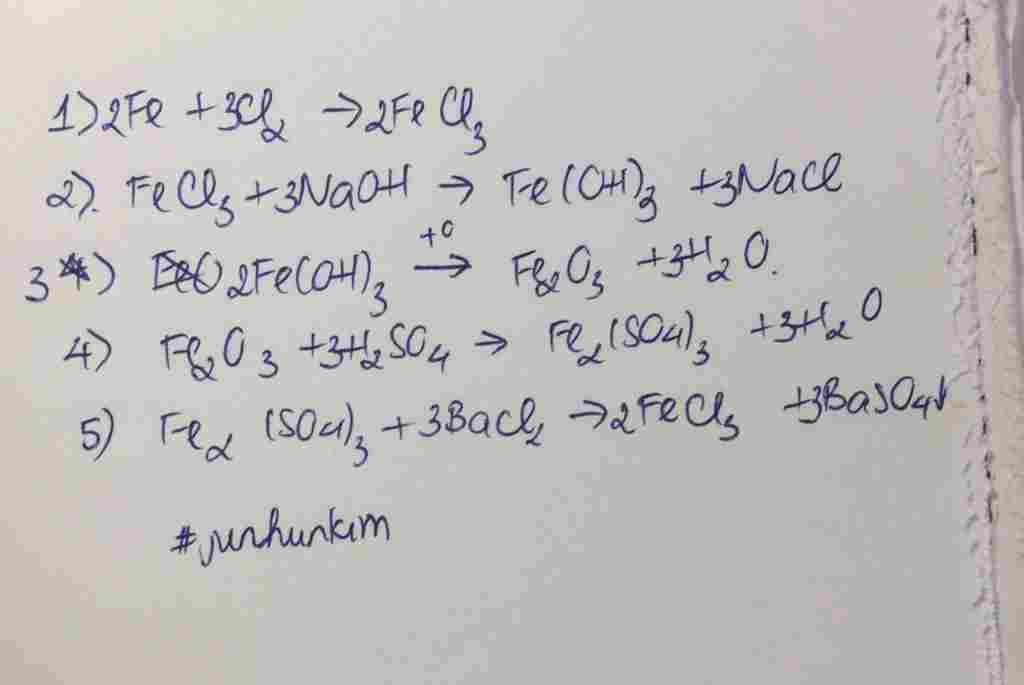 1) 2Fe + 3Cl₂ → 2FeCl₃
2). FeCl₃ + 3NaOH → Fe(OH)₃ + 3NaCl
3) 2Fe(OH)₃ →(t°) Fe₂O₃ + 3H₂O.
4) Fe₂O₃ + 3H₂SO₄ → Fe₂(SO₄)₃ + 3H₂O
5) Fe₂(SO₄)₃ + 3BaCl₂ → 2FeCl₃ + 3BaSO₄↓
#junhunkim